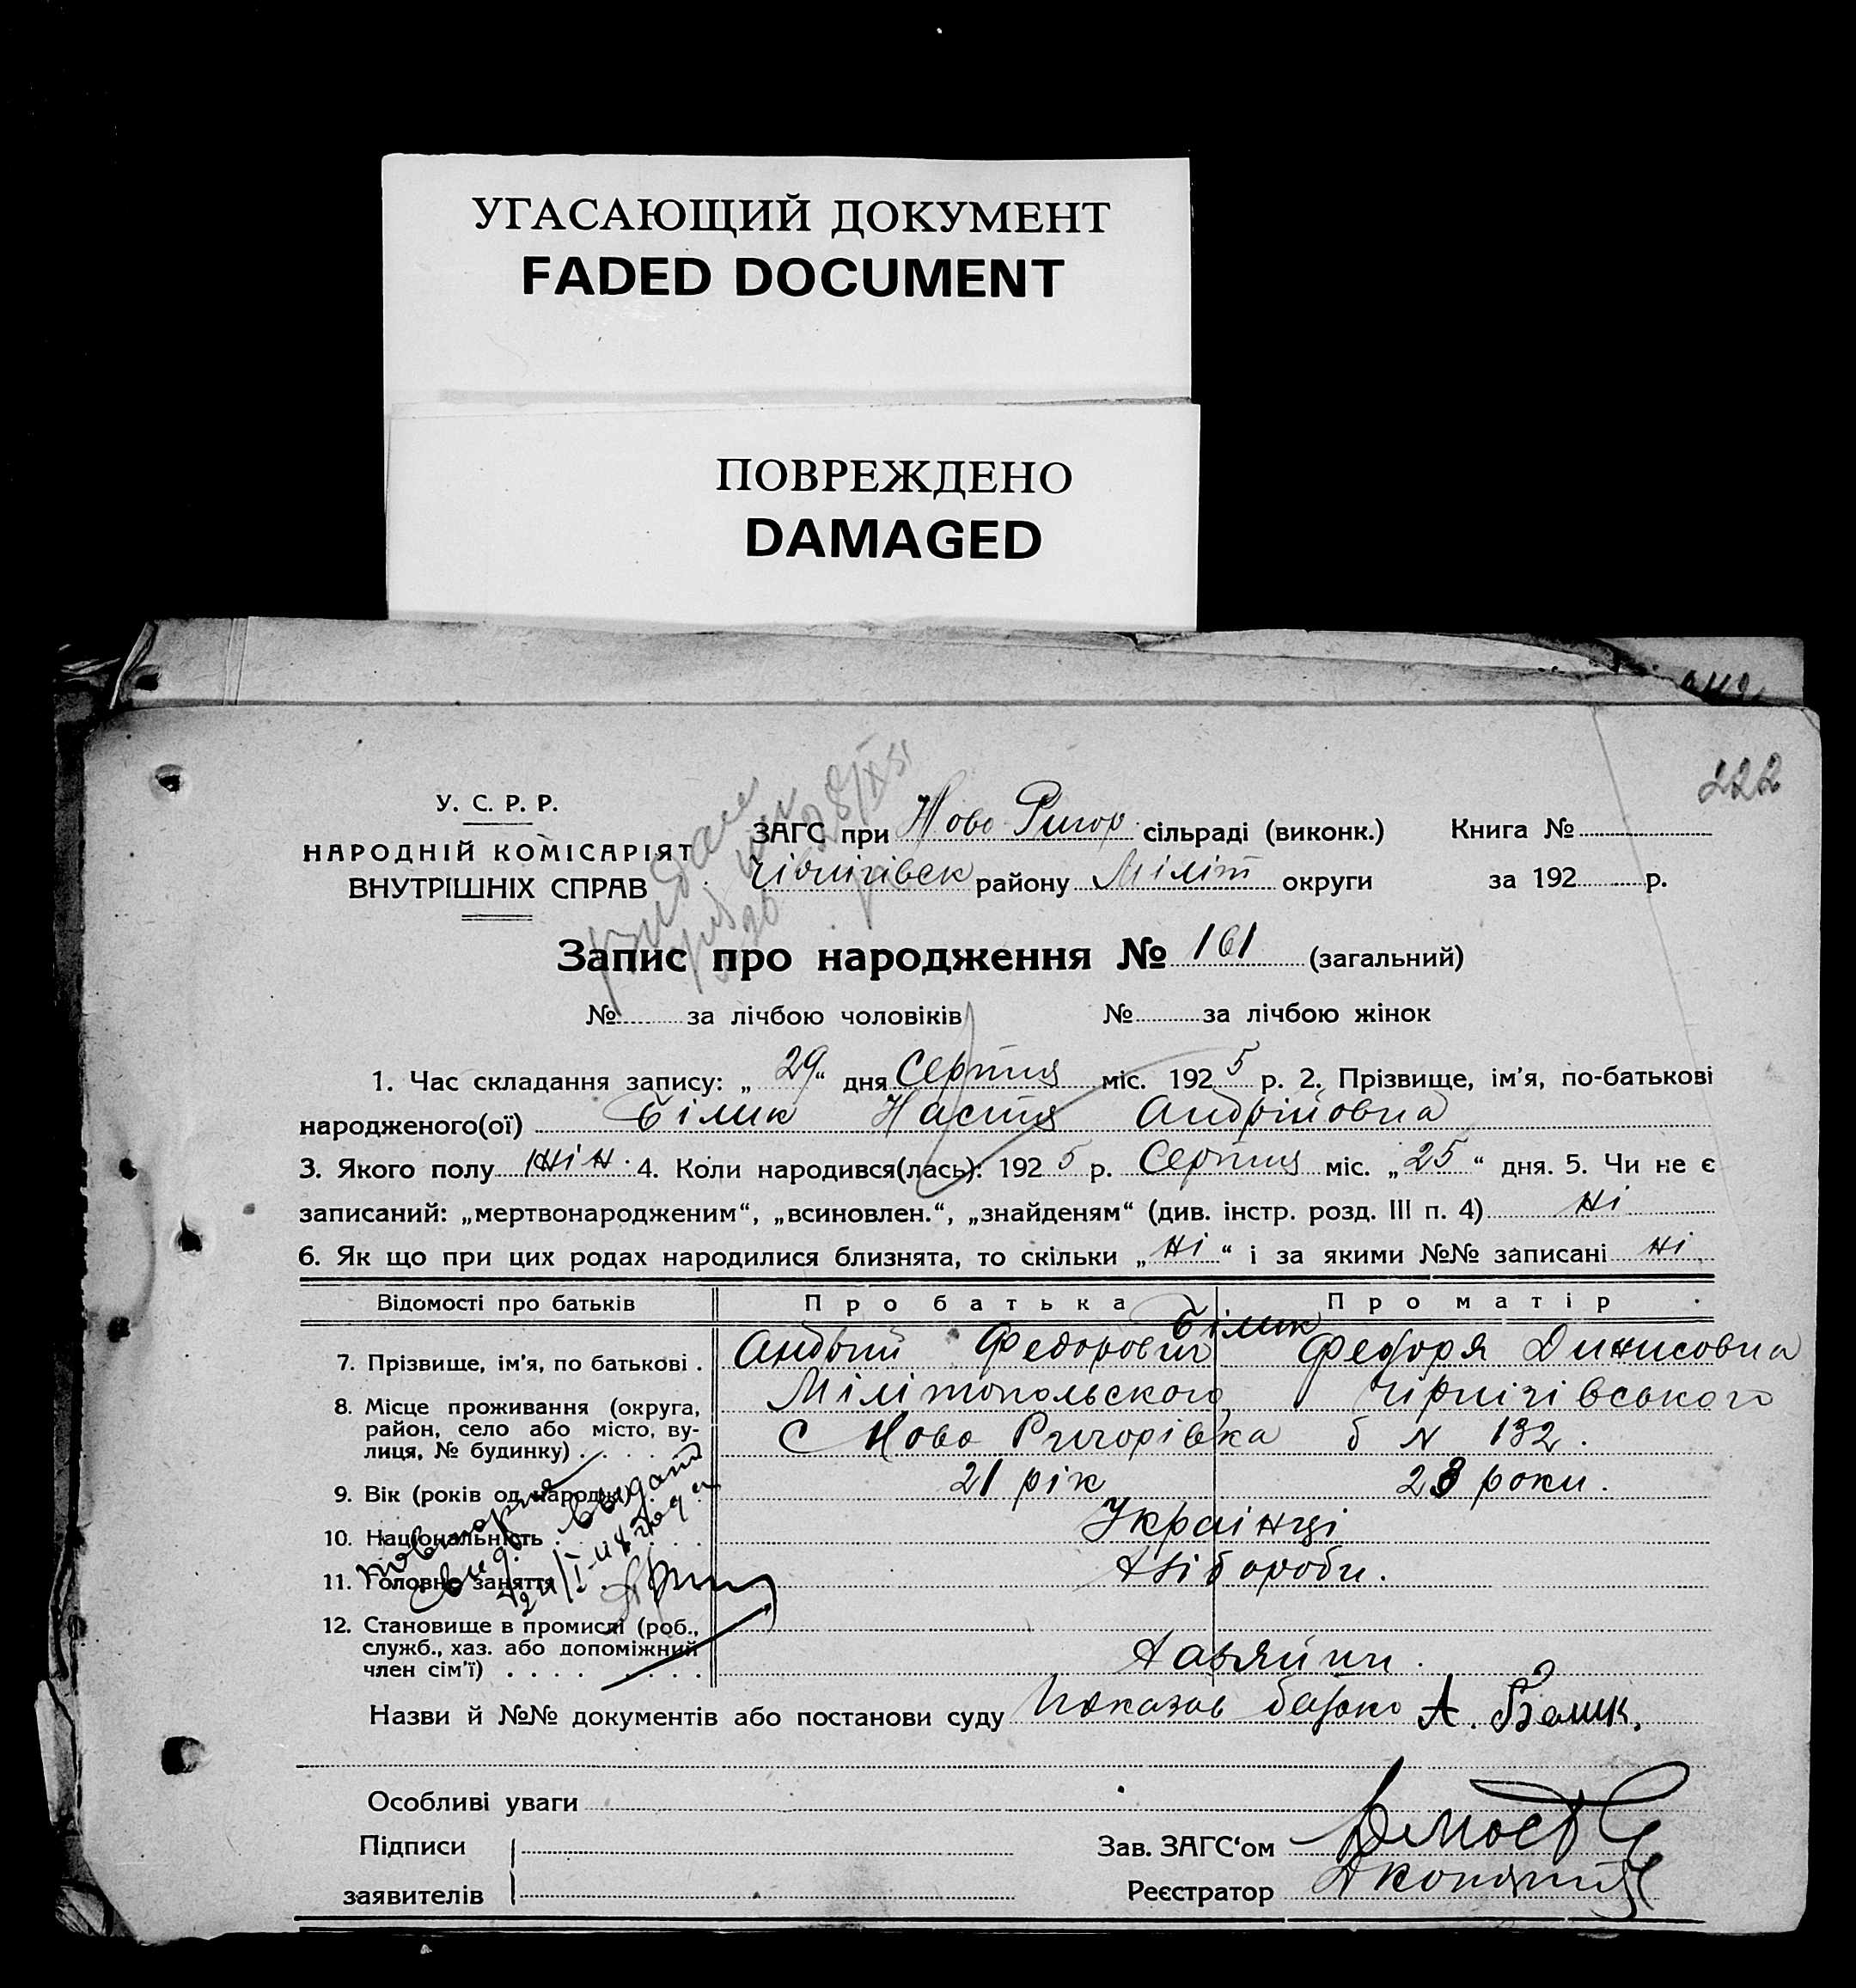 УГАСАЮЩИЙ ДОКУМЕНТ
FADED DOCUMENT
ПОВРЕЖДЕНО
DAMAGED
222
У. С. Р. Р.
НАРОДНІЙ КОМІСАРІЯТ
ВНУТРІШНІХ СПРАВ
ЗАГС при Ново Ригор. сільраді (виконк.) Книга №
району Міліт округи за 192 р.
Запис про народження № 161 (загальний)
№ за лічбою чоловіків № за лічбою жінок
1. Час складання запису: „ 29 “ дня Серпня міс. 1925 р. 2. Прізвище, ім'я, по-батькові
народженого(ої) Білик Настя Андрійовна
3. Якого полу жін. 4. Коли народився(лась): 1925 р. Серпня міс. „ 25 “ дня. 5. Чи не є
записаний: „мертвонародженим“, „всиновлен.“, „знайденям“ (див. інстр. розд. III п. 4) ні
6. Як що при цих родах народилися близнята, то скільки „ ні “ і за якими №№ записані ні
Відомості про батьків Про батька Про матір
Білик
7. Прізвище, ім'я, по батькові . Андрій Федорович Федоря Динисовна
8. Місце проживання (округа, район, село або місто, вулиця, № будинку) . Мілітопольского Чірнігівського
С Ново Ригорівка б N 132.
9. Вік (років од народж.) 21 рік 23 роки.
10. Національність Українці
11. Головне заняття Хліб ороби.
12. Становище в промислі (роб., служб., хаз. або допоміжний член сім'ї) Хазяйни.
повторное
свид. выдано
24/I-48 года
Назви й №№ документів або постанови суду Показав батько А. Білик.
Особливі уваги
Підписи
заявителів
Зав. ЗАГС‘ом
Реєстратор